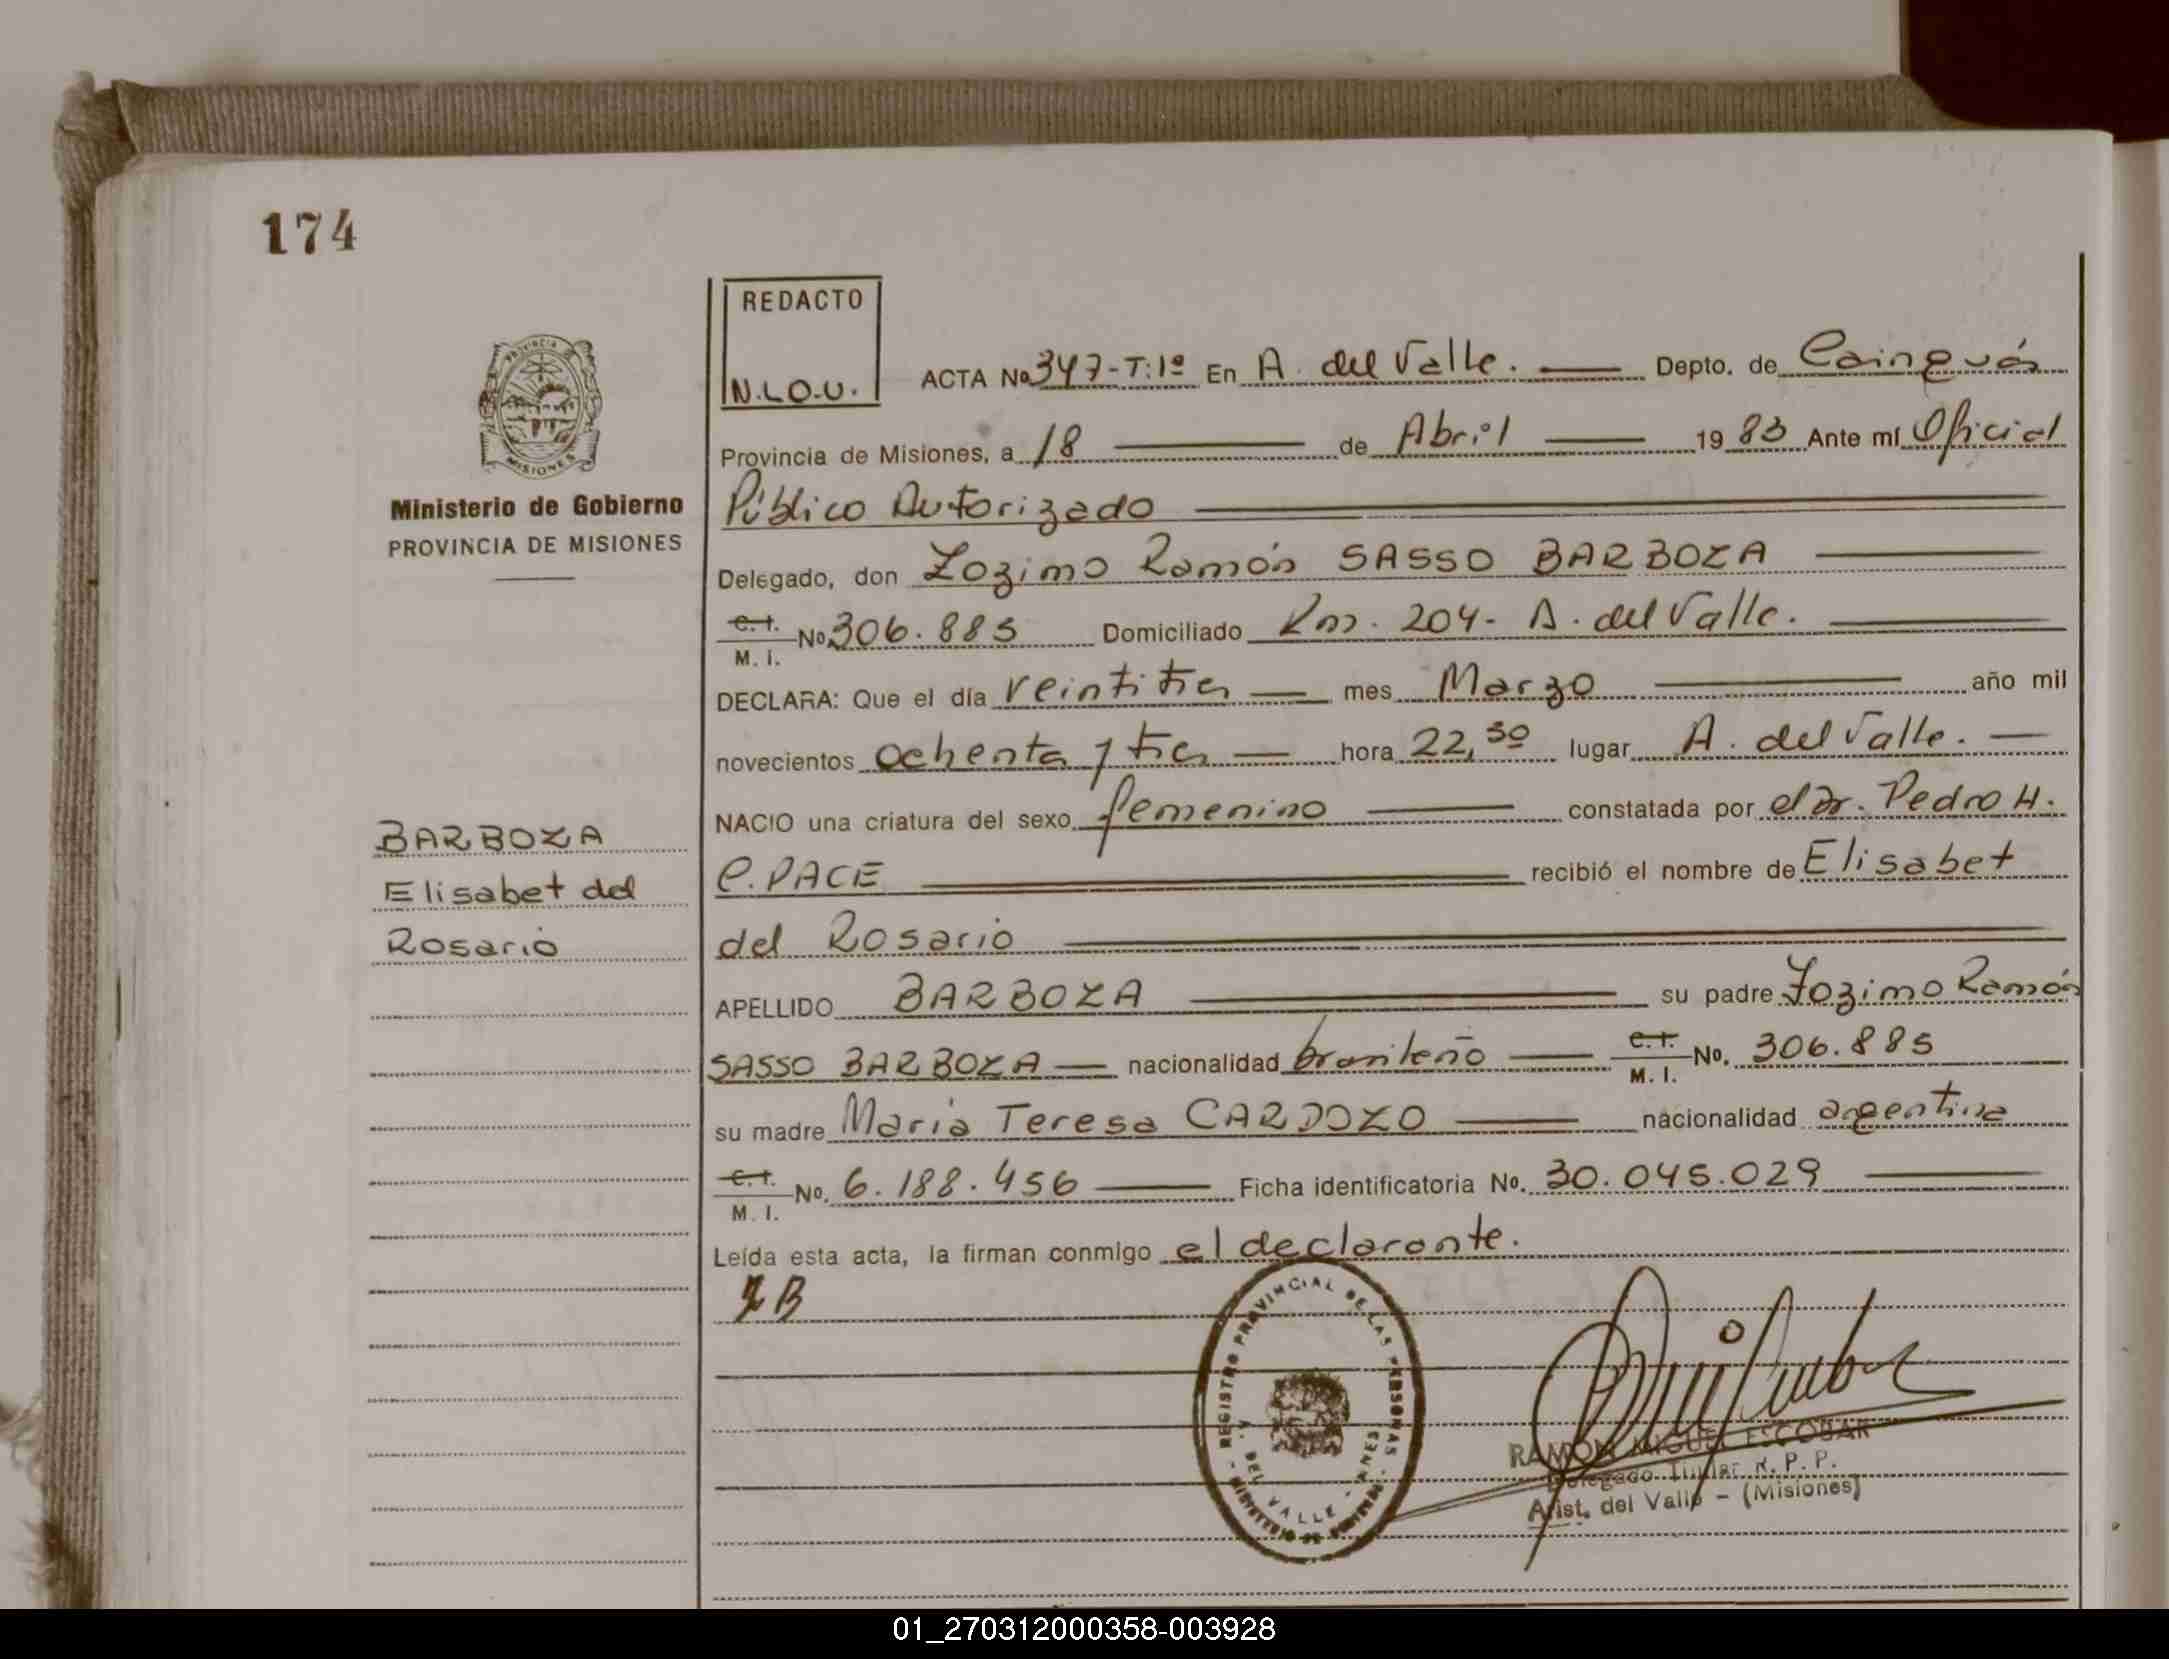 174
REDACTO
N.L.O.U.
ACTA No 347-T:1º En A. del Valle. Depto. de Cainguás
Provincia de Misiones, a 18 de Abril 1983 Ante mí Oficial
Público Autorizado
Delegado, don Zozimo Ramón SASSO BARBOZA
C.I.
M.I. No 306.885 Domiciliado Km. 204- A. del Valle.
DECLARA: Que el día veintitres mes Marzo año mil
novecientos ochenta y tres hora 22,30 lugar A. del Valle.
NACIO una criatura del sexo femenino constatada por el Dr. Pedro H.
C. PACE recibió el nombre de Elisabet
del Rosario
APELLIDO BARBOZA su padre Zozimo Ramón
SASSO BARBOZA nacionalidad brasileño C.I.
M.I. No. 306.885
su madre María Teresa CARDOZO nacionalidad argentina
C.I.
M.I. No. 6.188.456 Ficha identificatoria No. 30.045.029
Leída esta acta, la firman conmigo el declarante.
ZB
PROVINCIA DE
MISIONES
Ministerio de Gobierno
PROVINCIA DE MISIONES
BARBOZA
Elisabet del
Rosario
REGISTRO PROVINCIAL DE LAS PERSONAS
DEL VALLE
RAMON MIGUEL ESCOBAR
Delegado Titular R. P. P.
Arist. del Valle - (Misiones)
01_270312000358-003928